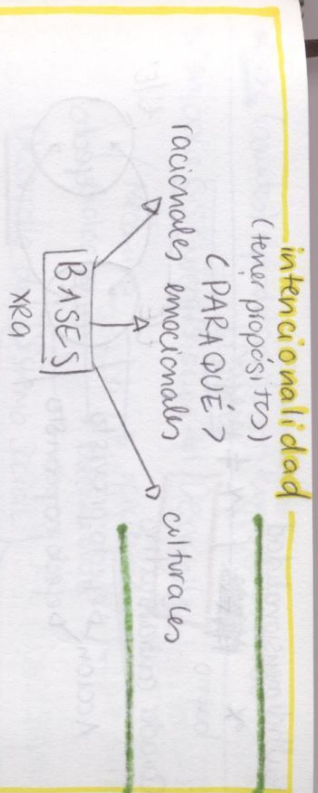 intencionalidad
(tener propósitos)
(PARAQUÉ)
racionales emocionales culturales
BASES
XRA